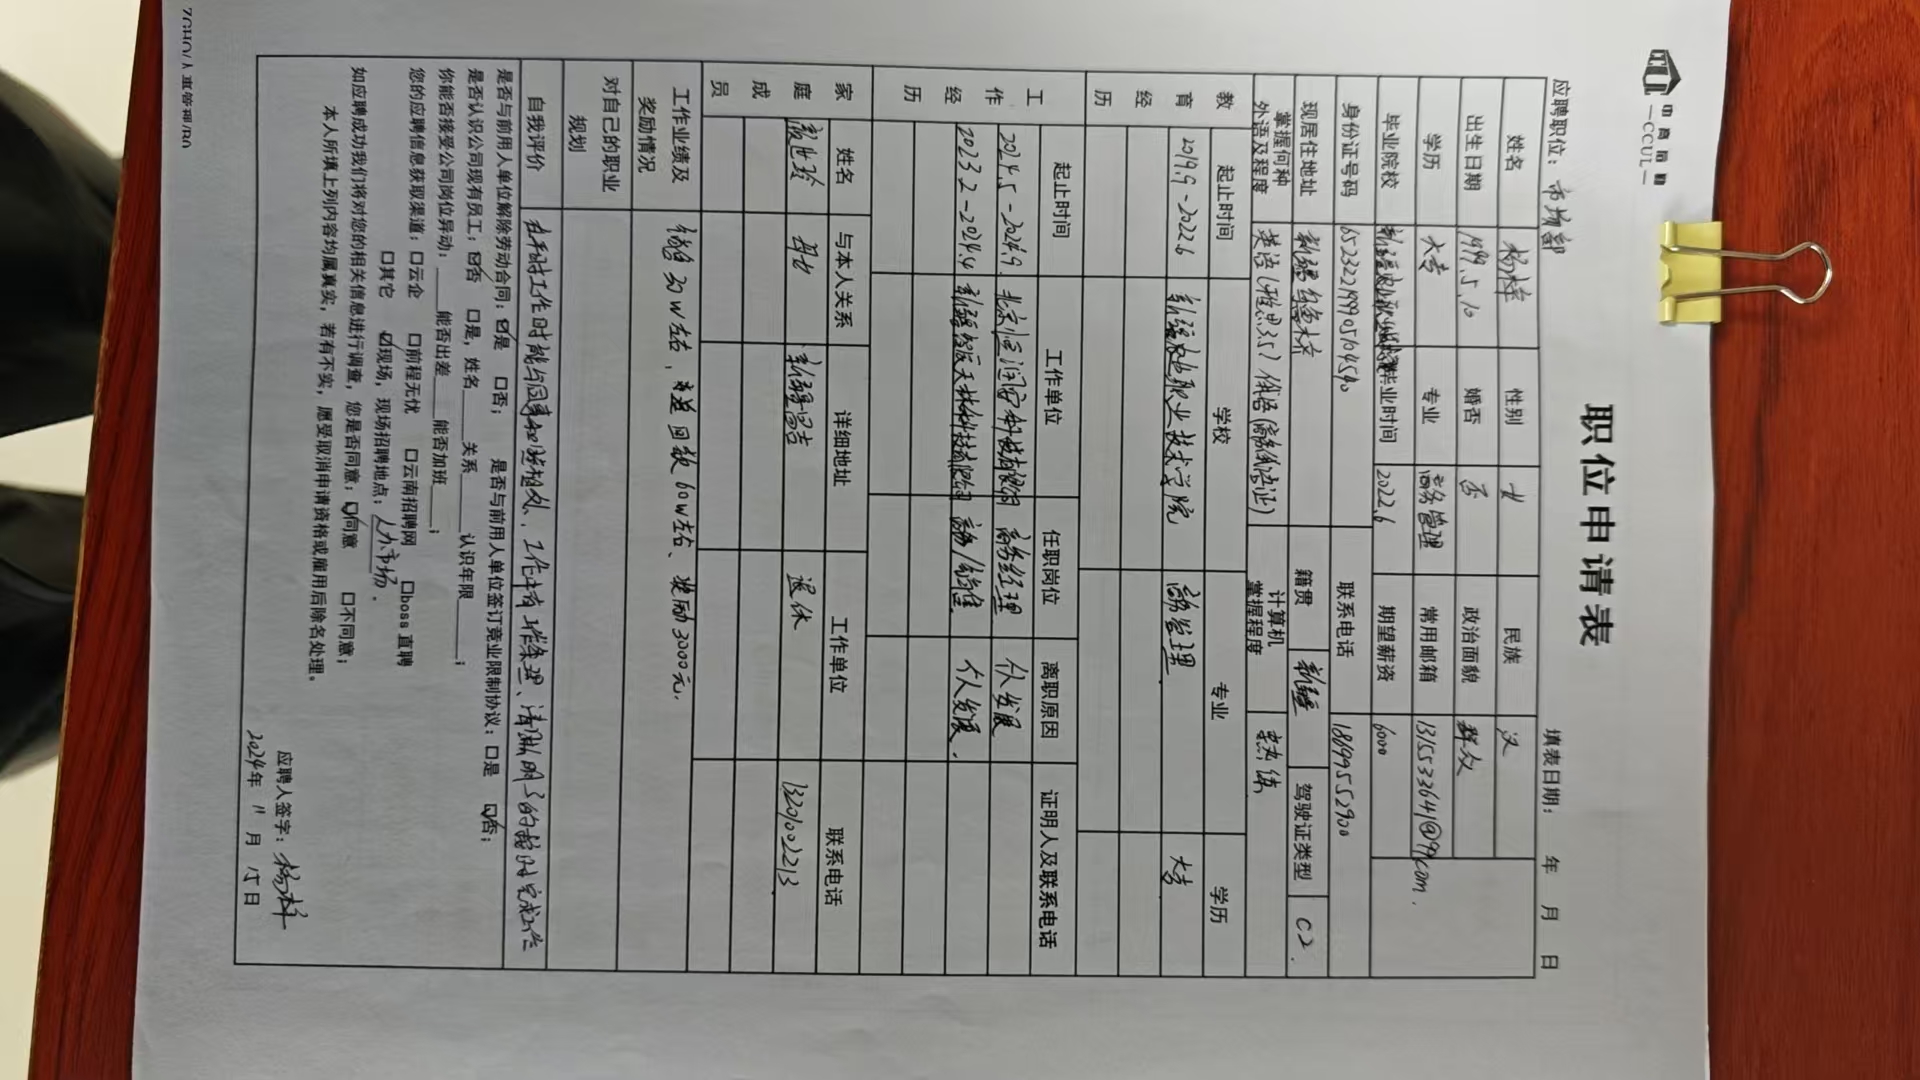 中商后勤
—CCUL—
职位申请表
应聘职位：市场部 填表日期： 年 月 日
姓名 杨梓 性别 女 民族 汉
出生日期 1999.5.10 婚否 否 政治面貌 群众
学历 大专 专业 商务管理 常用邮箱 1315533641@qq.com.
毕业院校 毕业时间 2022.6 期望薪资 6000
身份证号码 652322199905104540 联系电话 18699552900
现居住地址 新疆乌鲁木齐 籍贯 新疆 驾驶证类型 C2.
掌握何种外语及程度 英语（雅思3.5） 计算机掌握程度 熟练
教育经历 起止时间 学校 专业 学历
2019.9-2022.6 新疆 职业技术学院 商务管理. 大专
工作经历 起止时间 工作单位 任职岗位 离职原因 证明人及联系电话
2024.5-2024.9. 北京恒润 商务经理 个人发展
2023.2-2024.4 新疆 商务/销售. 个人发展.
家庭成员 姓名 与本人关系 详细地址 工作单位 联系电话
母女 新疆昌吉 退休 13201002213
工作业绩及奖励情况 销售30W左右, 回款60W左右、奖励3000元.
对自己的职业规划
自我评价 在平时工作时能与同事和睦相处、工作中有工作条理、清晰明了的按时完成工作
是否与前用人单位解除劳动合同：☑是 □否； 是否与前用人单位签订竞业限制协议：□是 ☑否；
是否认识公司现有员工：☑否 □是，姓名____关系____认识年限____；
你能否接受公司岗位异动：____能否出差____能否加班____；
您的应聘信息获取渠道：□云企 □前程无忧 □云南招聘网 □boss 直聘
□其它 ☑现场，现场招聘地点：人才市场.
如应聘成功我们将对您的相关信息进行调查，您是否同意：☑同意 □不同意；
本人所填上列内容均属真实，若有不实，愿受取消申请资格或雇用后除名处理。
应聘人签字：杨梓
2024年 11 月 15日